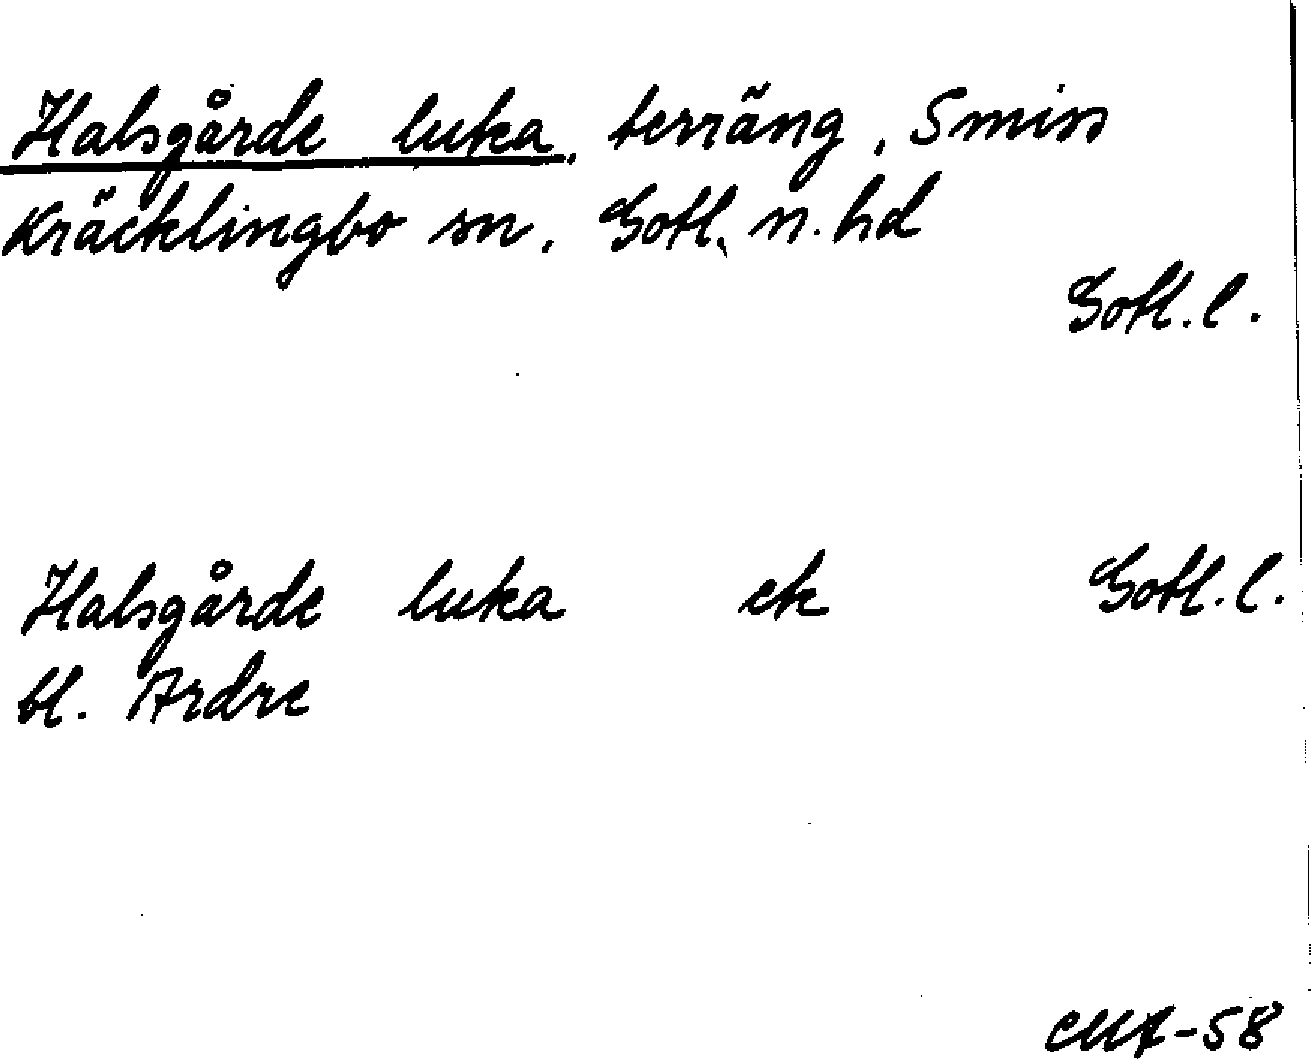 Halsgårde luka, terräng, Smiss
Kräcklingbo sn, Gotl. n. hd
Gotl. l.
Halsgårde luka ek Gotl. l.
bl. Ardre
CMA-58